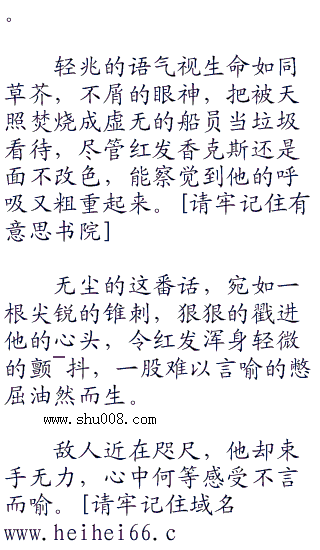 。
轻兆的语气视生命如同
草芥，不屑的眼神，把被天
照焚烧成虚无的船员当垃圾
看待，尽管红发香克斯还是
面不改色，能察觉到他的呼
吸又粗重起来。[请牢记住有
意思书院]
无尘的这番话，宛如一
根尖锐的锥刺，狠狠的戳进
他的心头，令红发浑身轻微
的颤¯抖，一股难以言喻的憋
屈油然而生。
www.shu008.com
敌人近在咫尺，他却束
手无力，心中何等感受不言
而喻。[请牢记住域名
www.heihei66.c